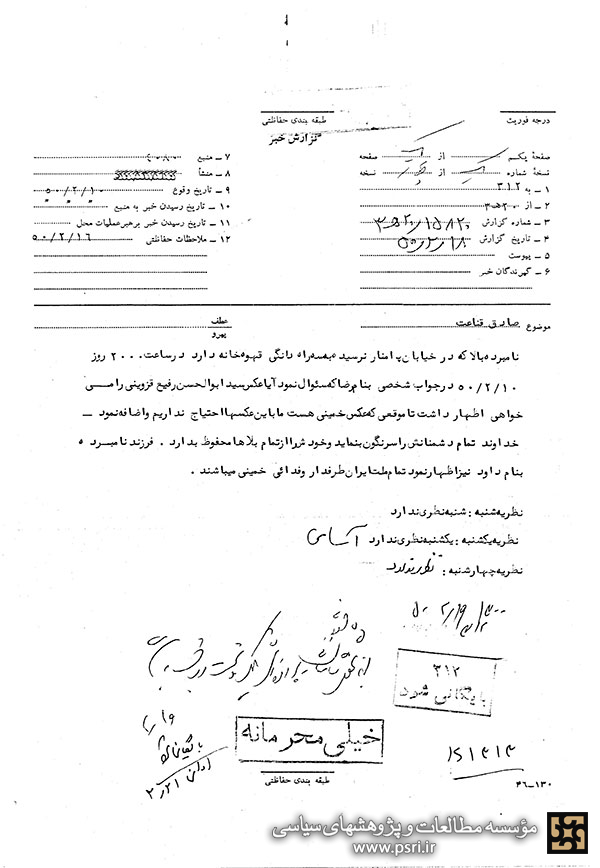 درجه فوریت
طبقه بندی حفاظتی
گزارش خبر
صفحهٔ یکم از یک صفحه
نسخهٔ شماره یک از نسخه
۱ ـ به ۳۱۲
۲ ـ از ۲۰ ه‍ ۳
۳ ـ شماره گزارش
۴ ـ تاریخ گزارش ۵۰/۲/۱۸
۵ ـ پیوست
۶ ـ گیرندگان خبر
۷ ـ منبع ۴۰۸۰
۸ ـ منشأ
۹ ـ تاریخ وقوع ۵۰/۲/۱۰
۱۰ ـ تاریخ رسیدن خبر به منبع
۱۱ ـ تاریخ رسیدن خبر برهبر عملیات محل
۱۲ ـ ملاحظات حفاظتی ۵۰/۲/۱۶
موضوع صادق قناعت
عطف
پیرو
نامبرده بالا که در خیابان پامنار نرسیده به سه راه دانگی قهوه خانه دارد در ساعت ۲۰۰۰ روز
۵۰/۲/۱۰ در جواب شخصی بنام رضا که سئوال نمود آیا عکس سید ابوالحسن رفیع قزوینی را می
خواهی اظهار داشت تا موقعی که عکس خمینی هست ما باین عکسها احتیاج نداریم و اضافه نمود ـ
خداوند تمام دشمنانش را سرنگون بنماید و خودش را از تمام بلاها محفوظ بدارد . فرزند نامبرده
بنام داود نیز اظهار نمود تمام ملت ایران طرفدار و فدائی خمینی میباشند .
نظریه شنبه : شنبه نظری ندارد
نظریه یکشنبه : یکشنبه نظری ندارد آسایی
نظریه چهارشنبه : نظری ندارد
۳۱۲
بایگانی شود
خیلی محرمانه
طبقه بندی حفاظتی
بایگانی شود
۱۵۱۳۱۳
۴۶-۱۳۰
مؤسسه مطالعات و پژوهشهای سیاسی
www.psri.ir